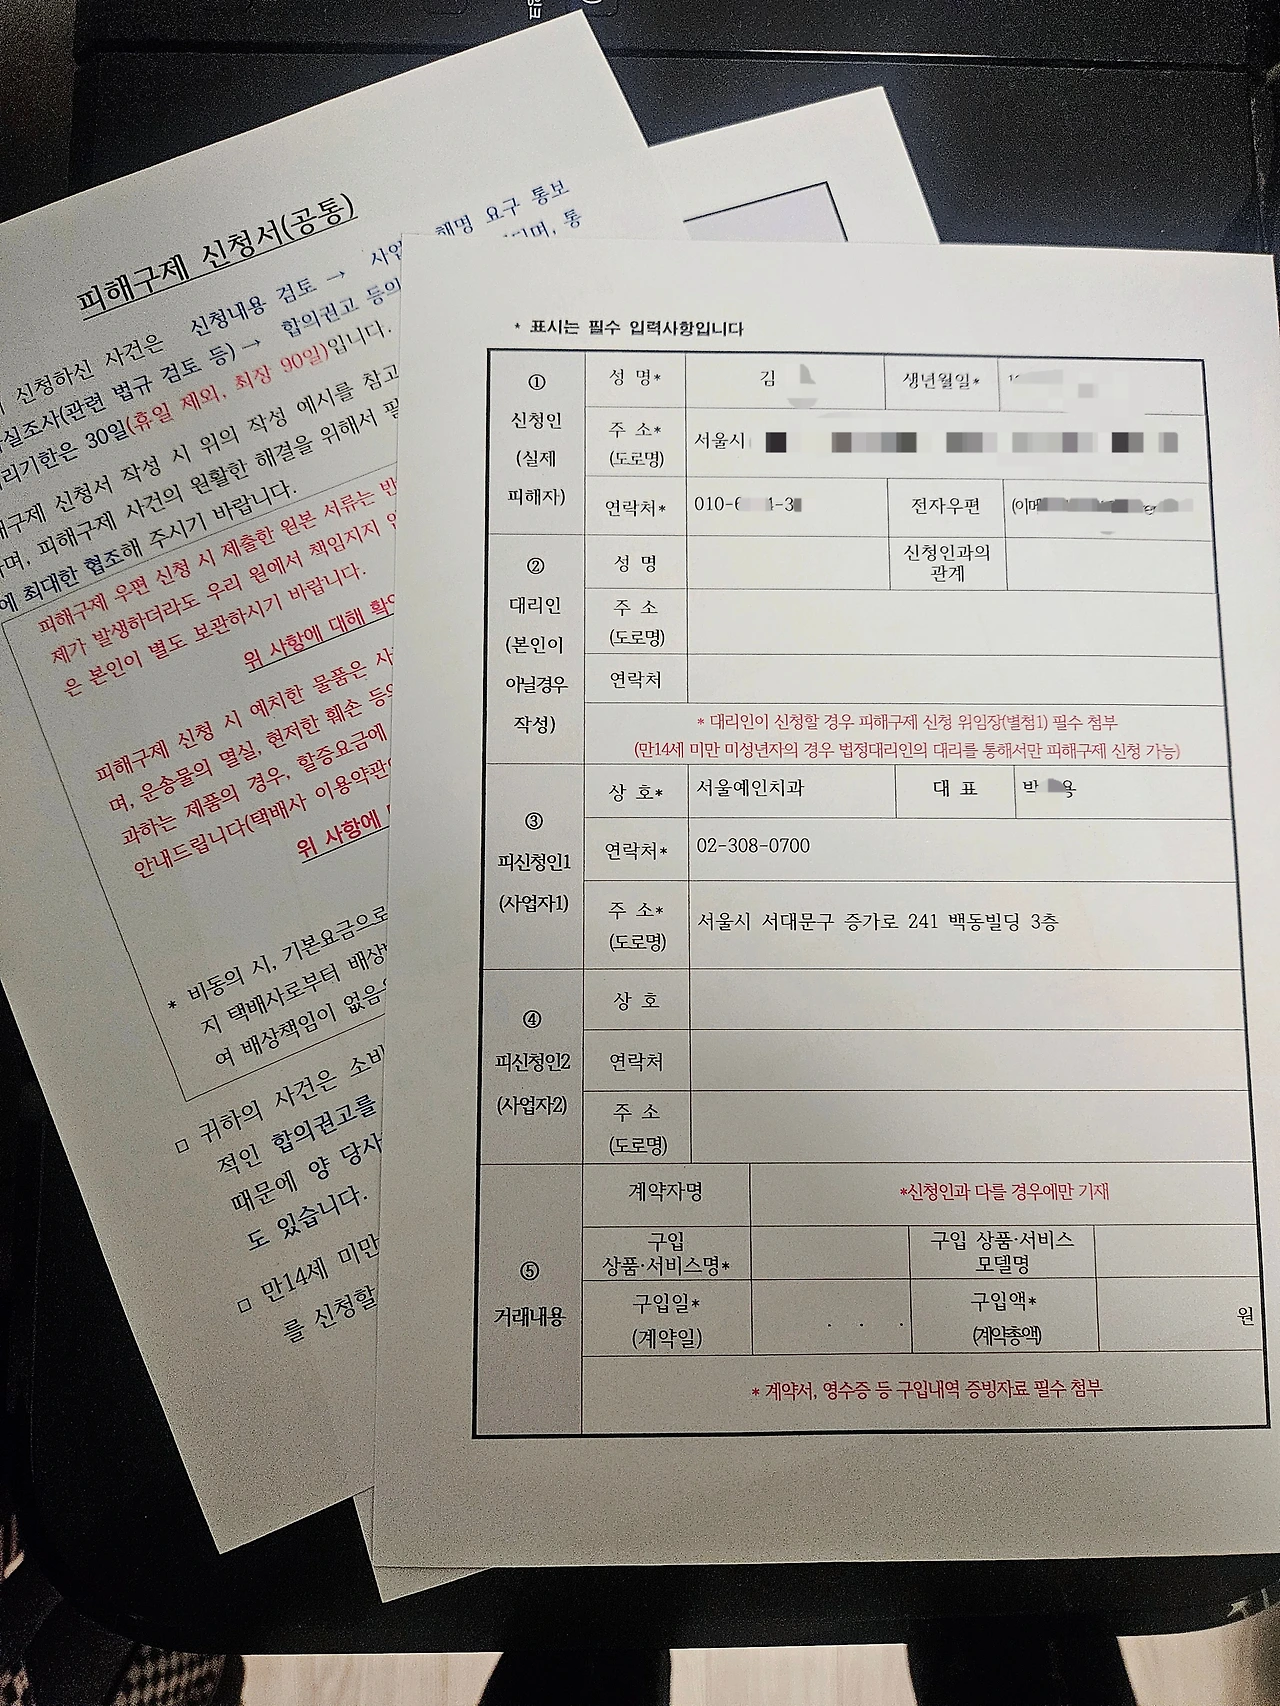 피해구제 신청서(공통)
신청하신 사건은 신청내용 검토 → 해명 요구 통보
실조사(관련 법규 검토 등) → 합의권고 등의 되며, 통
리기한은 30일(휴일 제외, 최장 90일)입니다.
해구제 신청서 작성 시 위의 작성 예시를 참고
며, 피해구제 사건의 원활한 해결을 위해서 필
에 최대한 협조해 주시기 바랍니다.
피해구제 우편 신청 시 제출한 원본 서류는 반
제가 발생하더라도 우리 원에서 책임지지 않
은 본인이 별도 보관하시기 바랍니다.
위 사항에 대해 확인
피해구제 신청 시 예치한 물품은 사
며, 운송물의 멸실, 현저한 훼손 등의
과하는 제품의 경우, 할증요금에
안내드립니다(택배사 이용약관
위 사항에
* 비동의 시, 기본요금으로
지 택배사로부터 배상
여 배상책임이 없음
□ 귀하의 사건은 소비
적인 합의권고를
때문에 양 당사
도 있습니다.
□ 만14세 미만
를 신청할
* 표시는 필수 입력사항입니다
① 신청인 (실제 피해자)
성 명* 김 생년월일*
주 소* (도로명) 서울시
연락처* 010-6 4-3 전자우편 (이메
② 대리인 (본인이 아닐경우 작성)
성 명 신청인과의 관계
주 소 (도로명)
연락처
* 대리인이 신청할 경우 피해구제 신청 위임장(별첨1) 필수 첨부
(만14세 미만 미성년자의 경우 법정대리인의 대리를 통해서만 피해구제 신청 가능)
③ 피신청인1 (사업자1)
상 호* 서울예인치과 대 표 박 용
연락처* 02-308-0700
주 소* (도로명) 서울시 서대문구 증가로 241 백동빌딩 3층
④ 피신청인2 (사업자2)
상 호
연락처
주 소 (도로명)
⑤ 거래내용
계약자명 *신청인과 다를 경우에만 기재
구입 상품·서비스명* 구입 상품·서비스 모델명
구입일* (계약일) . . . 구입액* (계약총액) 원
* 계약서, 영수증 등 구입내역 증빙자료 필수 첨부